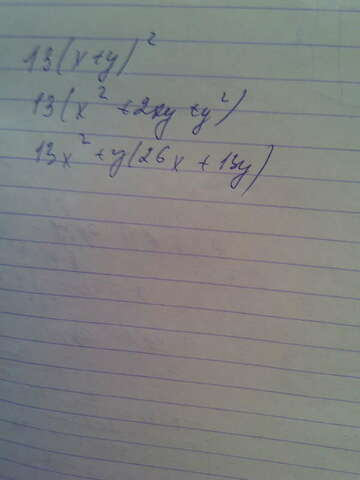 13(x+y)²
13(x²+2xy+y²)
13x²+y(26x+13y)